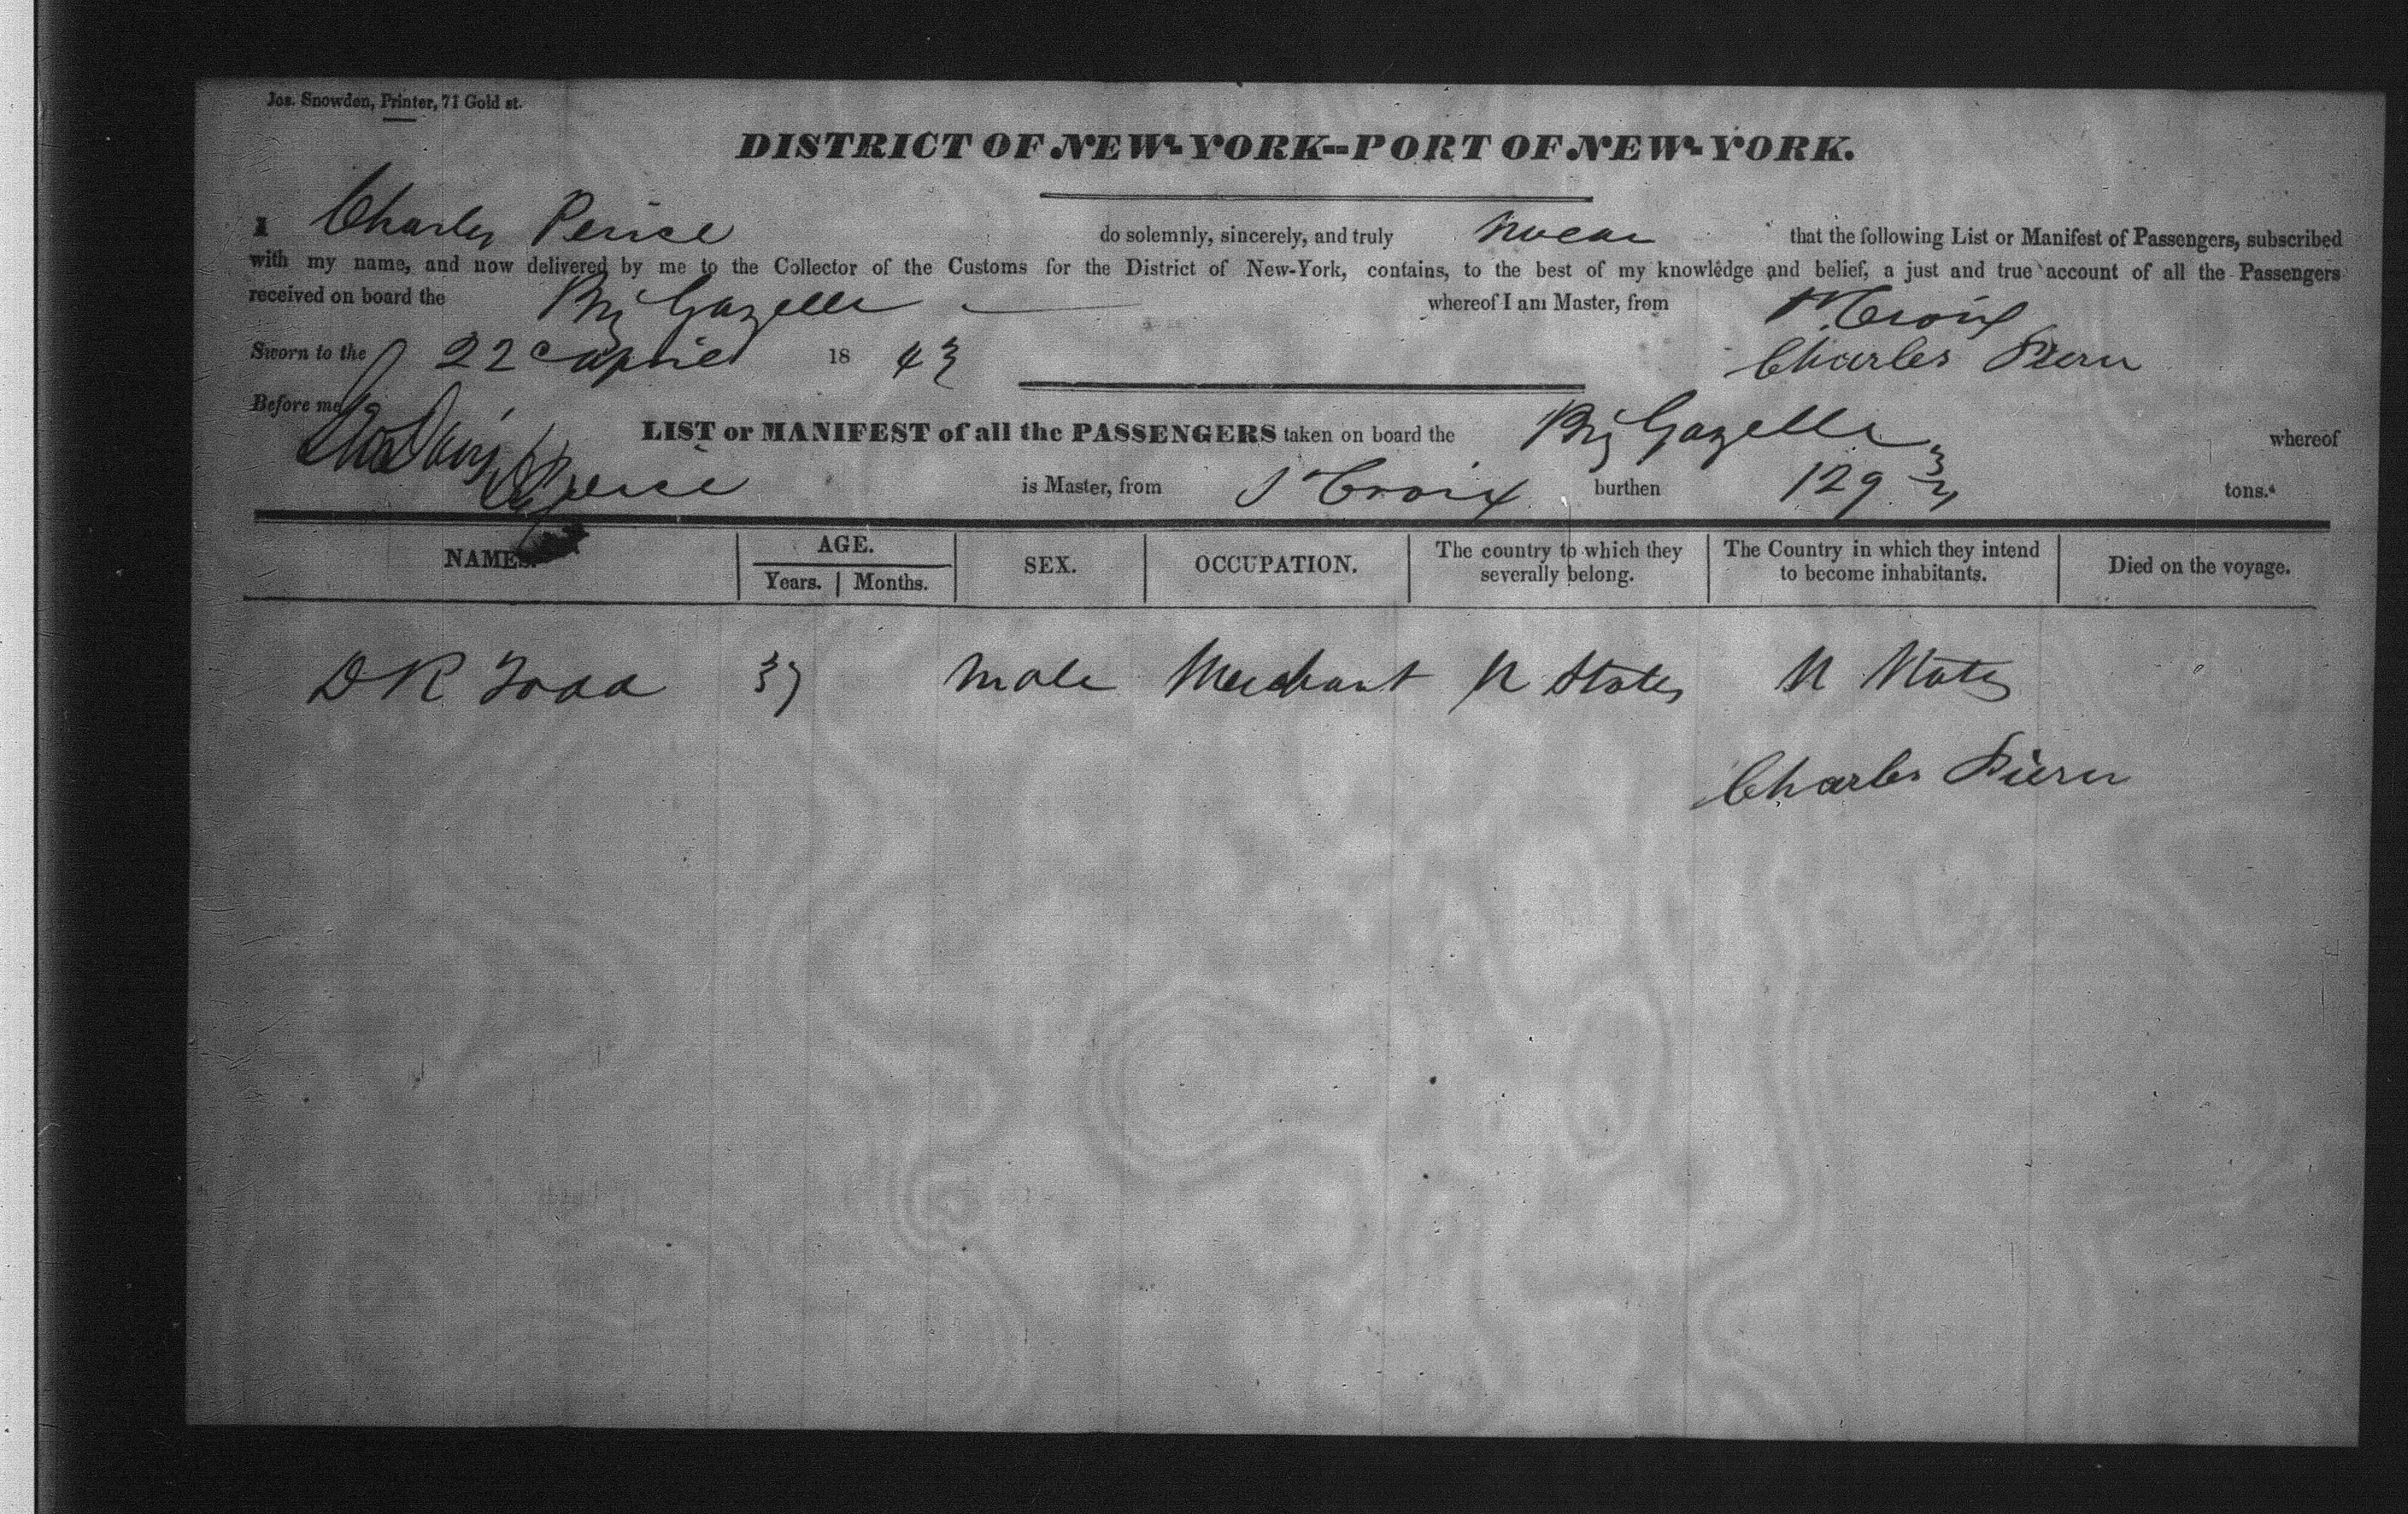 Jos. Snowden, Printer, 71 Gold st.
DISTRICT OF NEW-YORK--PORT OF NEW-YORK.
I Charles Peirce do solemnly, sincerely, and truly swear that the following List or Manifest of Passengers, subscribed
with my name, and now delivered by me to the Collector of the Customs for the District of New-York, contains, to the best of my knowledge and belief, a just and true account of all the Passengers
received on board the Brig Gazelle whereof I am Master, from St Croix
Sworn to the 22 April 1843 Charles Pierce
Before me
LIST or MANIFEST of all the PASSENGERS taken on board the Brig Gazelle whereof
Peirce is Master, from St Croix burthen 129 tons.
NAMES. AGE. SEX. OCCUPATION. The country to which they severally belong. The Country in which they intend to become inhabitants. Died on the voyage.
Years. Months.
D R Todd 37 male Merchant U States U States
Charles Pierce